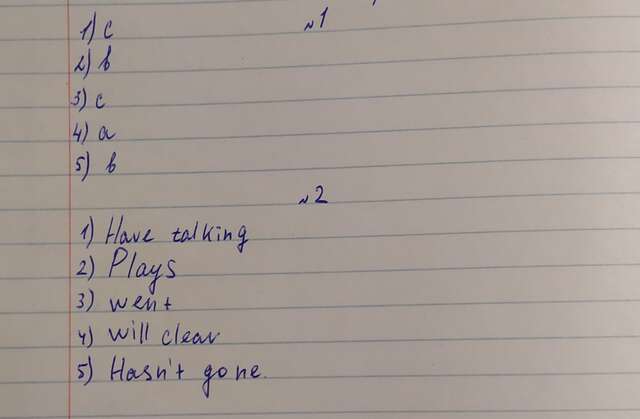 №1
1) c
2) b
3) c
4) a
5) b
№2
1) Have talking
2) Plays
3) went
4) will clear
5) Hasn't gone.